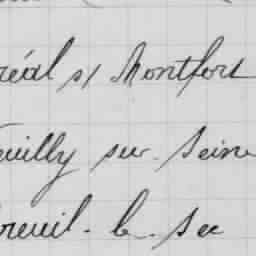 réal s/ Montfort
euilly sur Seine
reuil - le - Sec